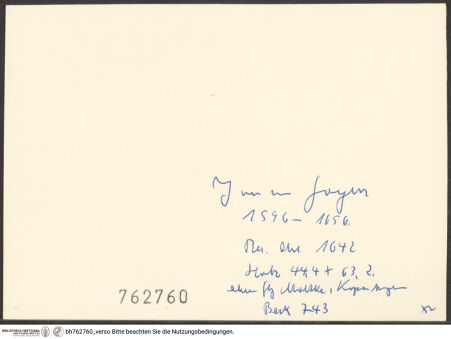 Jan van Goyen
1596 - 1656.
Bez. dat 1642
Holz 44,4 x 63,2.
ehem Slg Moltke, Kopenhagen
Beck 743
762760
BIBLIOTHECA HERTZIANA bh762760_verso Bitte beachten Sie die Nutzungsbedingungen.